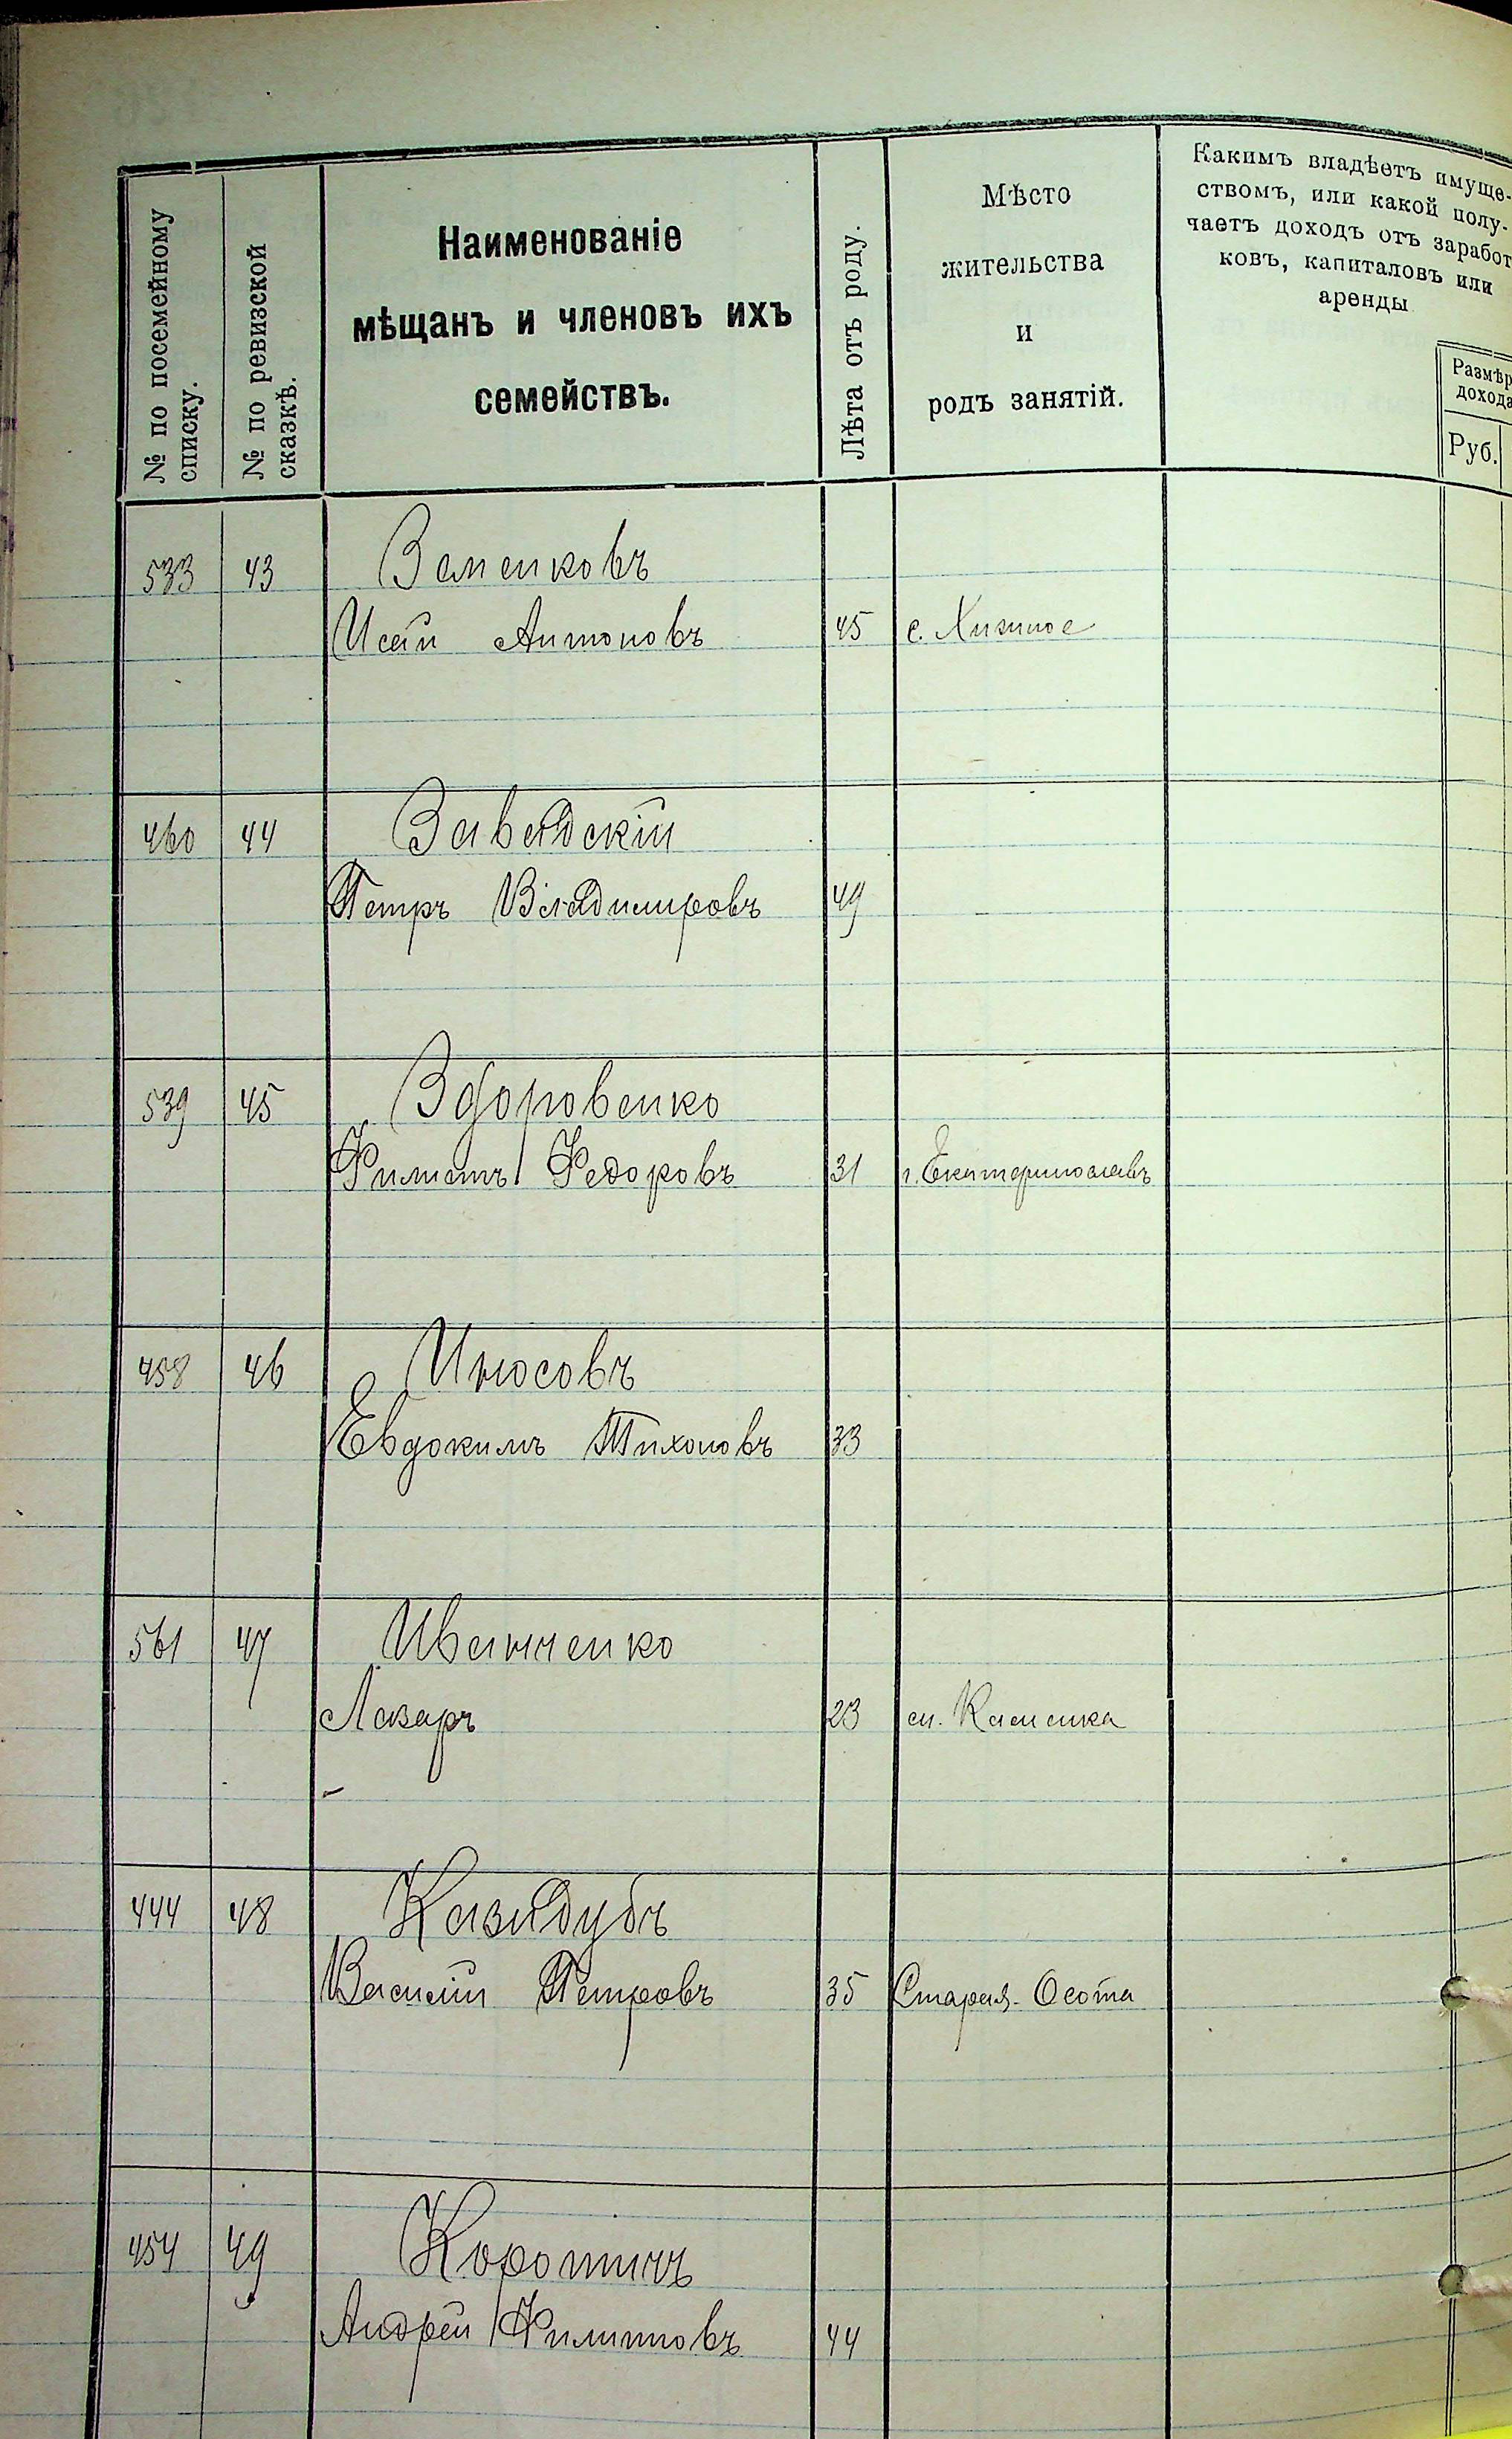 № по посемейному
списку.
№ по ревизской
сказкѣ.
Наименованіе
мѣщанъ и членовъ ихъ
семействъ.
Лѣта отъ роду.
Мѣсто
жительства
и
родъ занятій.
Какимъ владѣетъ имуще-
ствомъ, или какой полу-
чаетъ доходъ отъ заработ
ковъ, капиталовъ или
аренды
Размѣр
дохода
Руб.
533 43 Заменковъ
Исай Антоновъ 45 с.
460 44 Завадскій
Петръ Владимировъ 49
539 45 Здоровенко
Филиппъ Федоровъ 31 г. Екатеринославъ
458 46 Иносовъ
Евдокимъ Тихоновъ 33
561 47 Иванченко
Лазарь 23 ст. Каменка
444 48 Казидубъ
Василій Петровъ 35 Старая-Осота
454 49 Коротичъ
Андрей Филиповъ 44